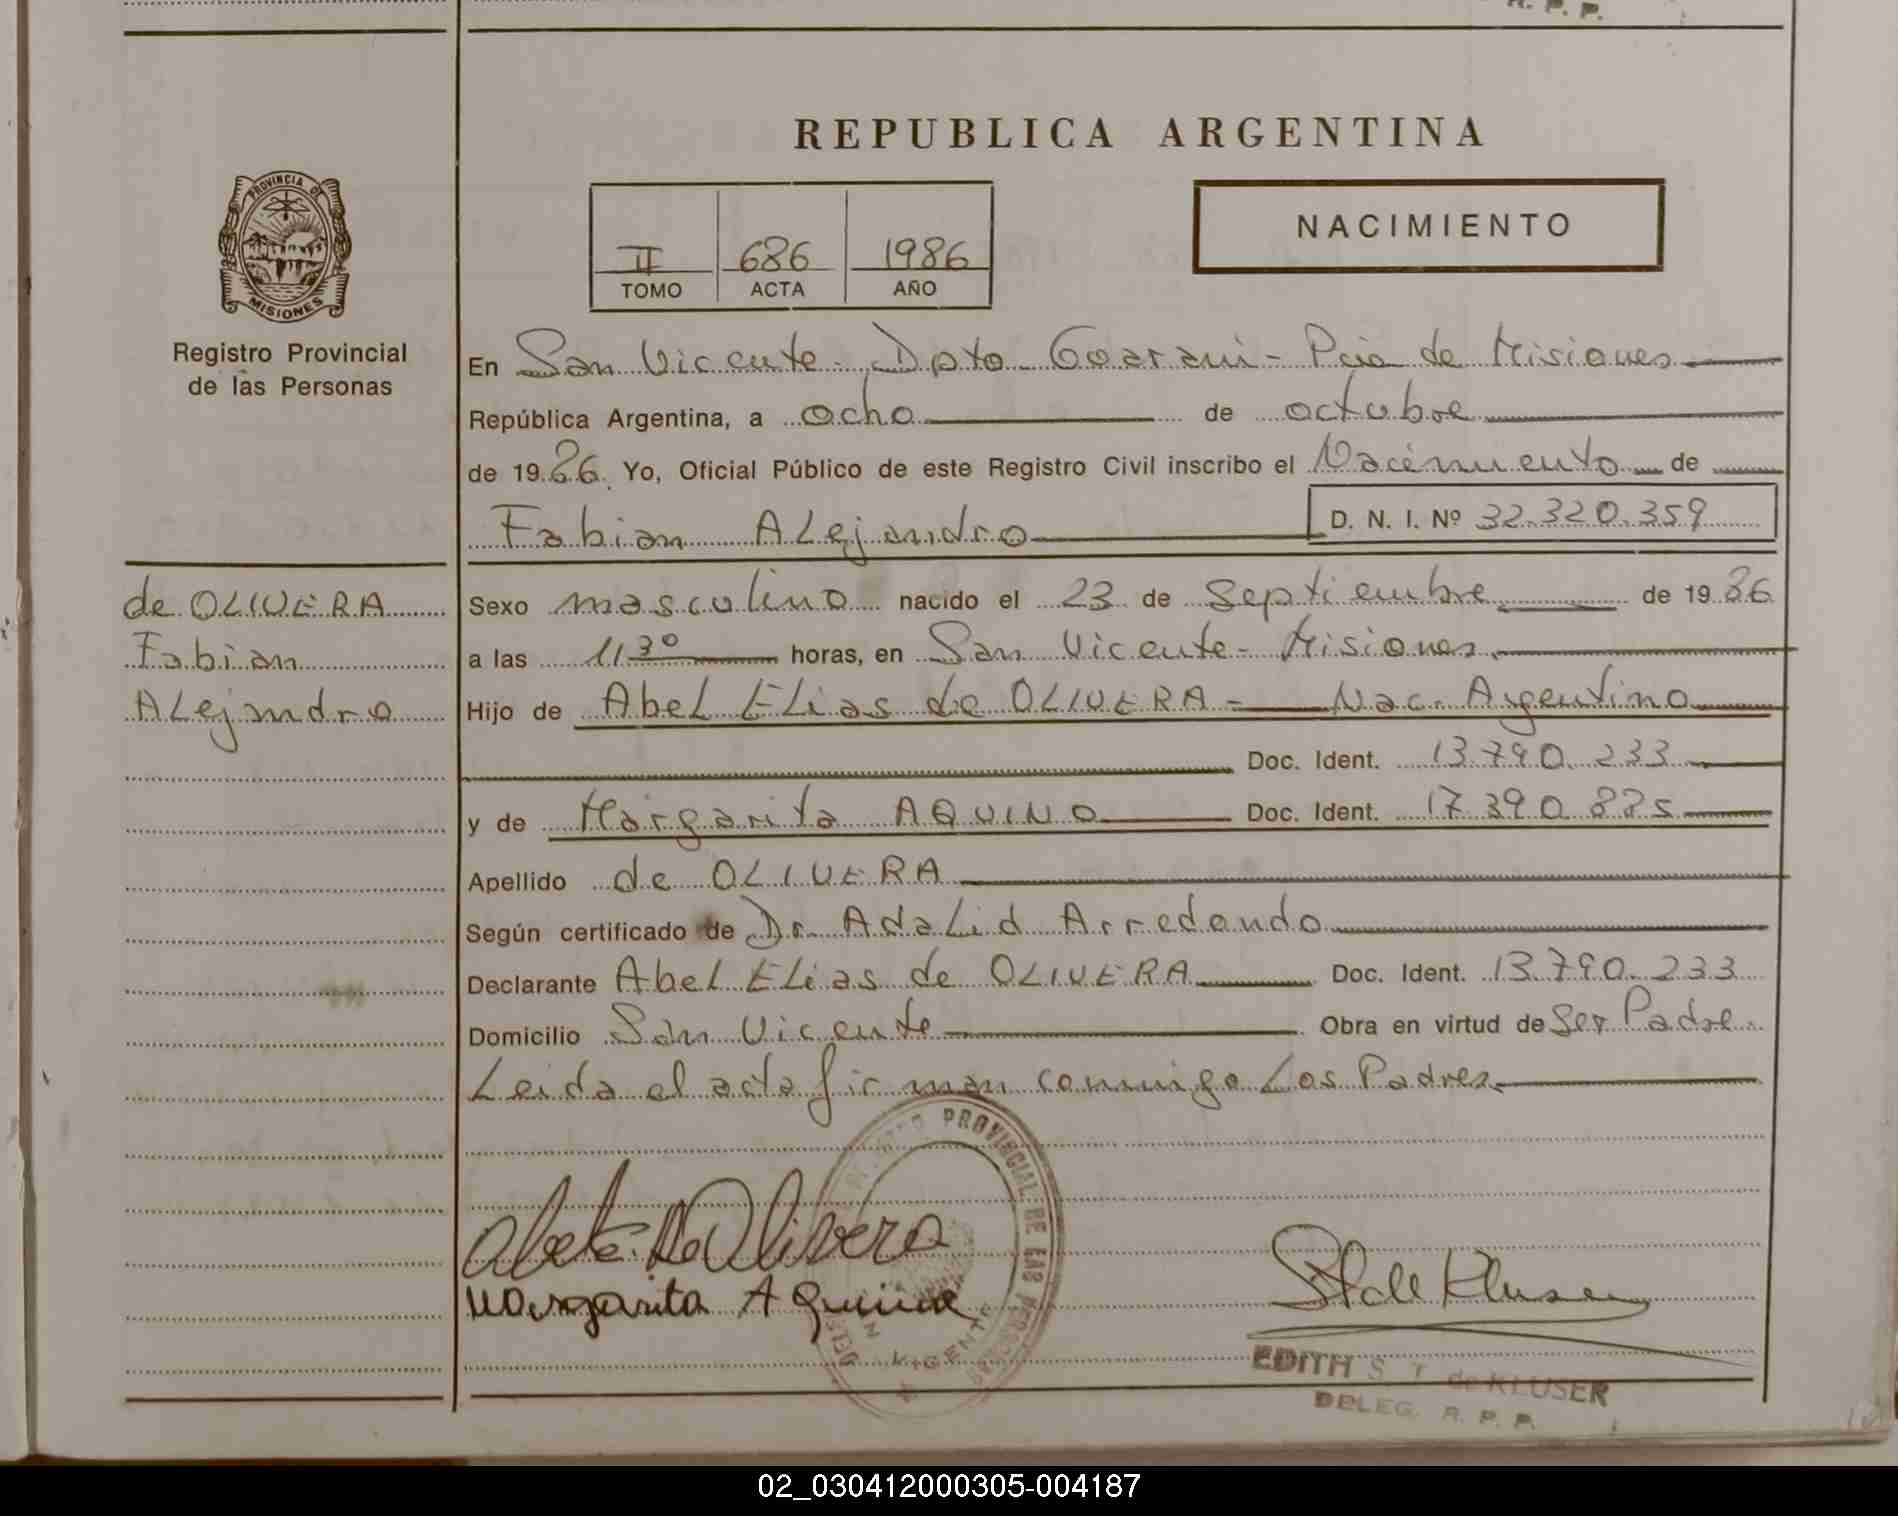 R. P. P.
REPUBLICA ARGENTINA
PROVINCIA D
MISIONES
Registro Provincial
de las Personas
II 686 1986
TOMO ACTA AÑO
NACIMIENTO
En San Vicente - Dpto Guarani - Pcia de Misiones
República Argentina, a ocho de octubre
de 1986. Yo, Oficial Público de este Registro Civil inscribo el Nacimiento de
Fabian ALejandro D. N. I. Nº 32.320.359
de OLIVERA
Fabian
ALejandro
Sexo masculino nacido el 23 de Septiembre de 1986
a las 11 30 horas, en San Vicente - Misiones.
Hijo de AbeL ELias de OLIVERA - Nac. Argentino
Doc. Ident. 13.790.233
y de Margarita AQUINO Doc. Ident. 17.390.885
Apellido de OLIVERA
Según certificado de Dr. AdaLid Arredondo
Declarante AbeL ELias de OLIVERA Doc. Ident. 13.790.233
Domicilio San Vicente Obra en virtud de Ser Padre.
Leida el acta firman conmigo Los Padres.
PROVINCIAL DE LAS PERSONAS
VICENTE
De Olivera
Margarita Aquino
Kluser
EDITH S. T. de KLUSER
DELEG. R. P. P.
02_030412000305-004187